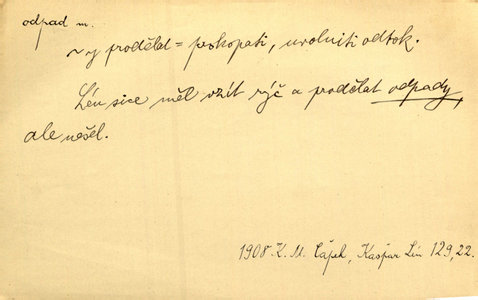 odpad m.
~y prodělat = prokopati, uvolniti odtok.
Lín sice měl vzít rýč a prodělat odpady,
ale nešel.
1908. K. M. Čapek, Kašpar Lín 129, 22.